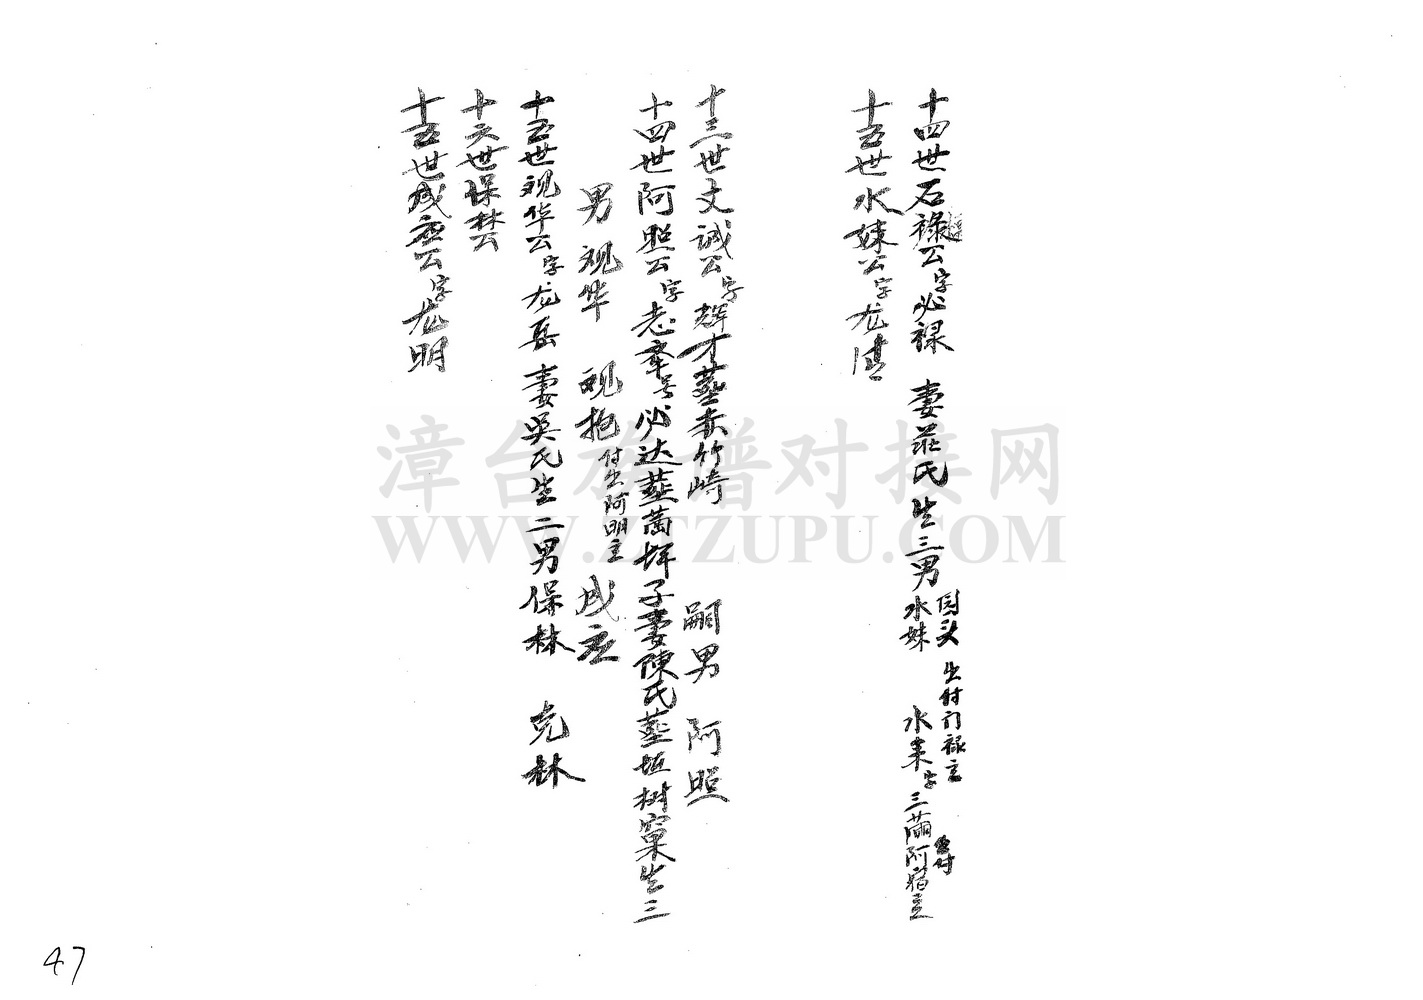 十四世石祿公字必禄 妻莊氏生三男水妹 水来字三
回头 出付门禄立 出付
十五世水妹公字龙
十三世文诚公字辉才葬赤竹崎 嗣男 阿照
十四世阿照公字志 号必达葬 坪子妻陳氏葬垢树窠生三
男 观华 观抱付出阿明立 成应
十五世观华公字龙岳 妻吴氏生二男保林 克林
十六世保林公
十五世成应公字龙明
漳台族谱对接网
WWW.ZTZUPU.COM
47